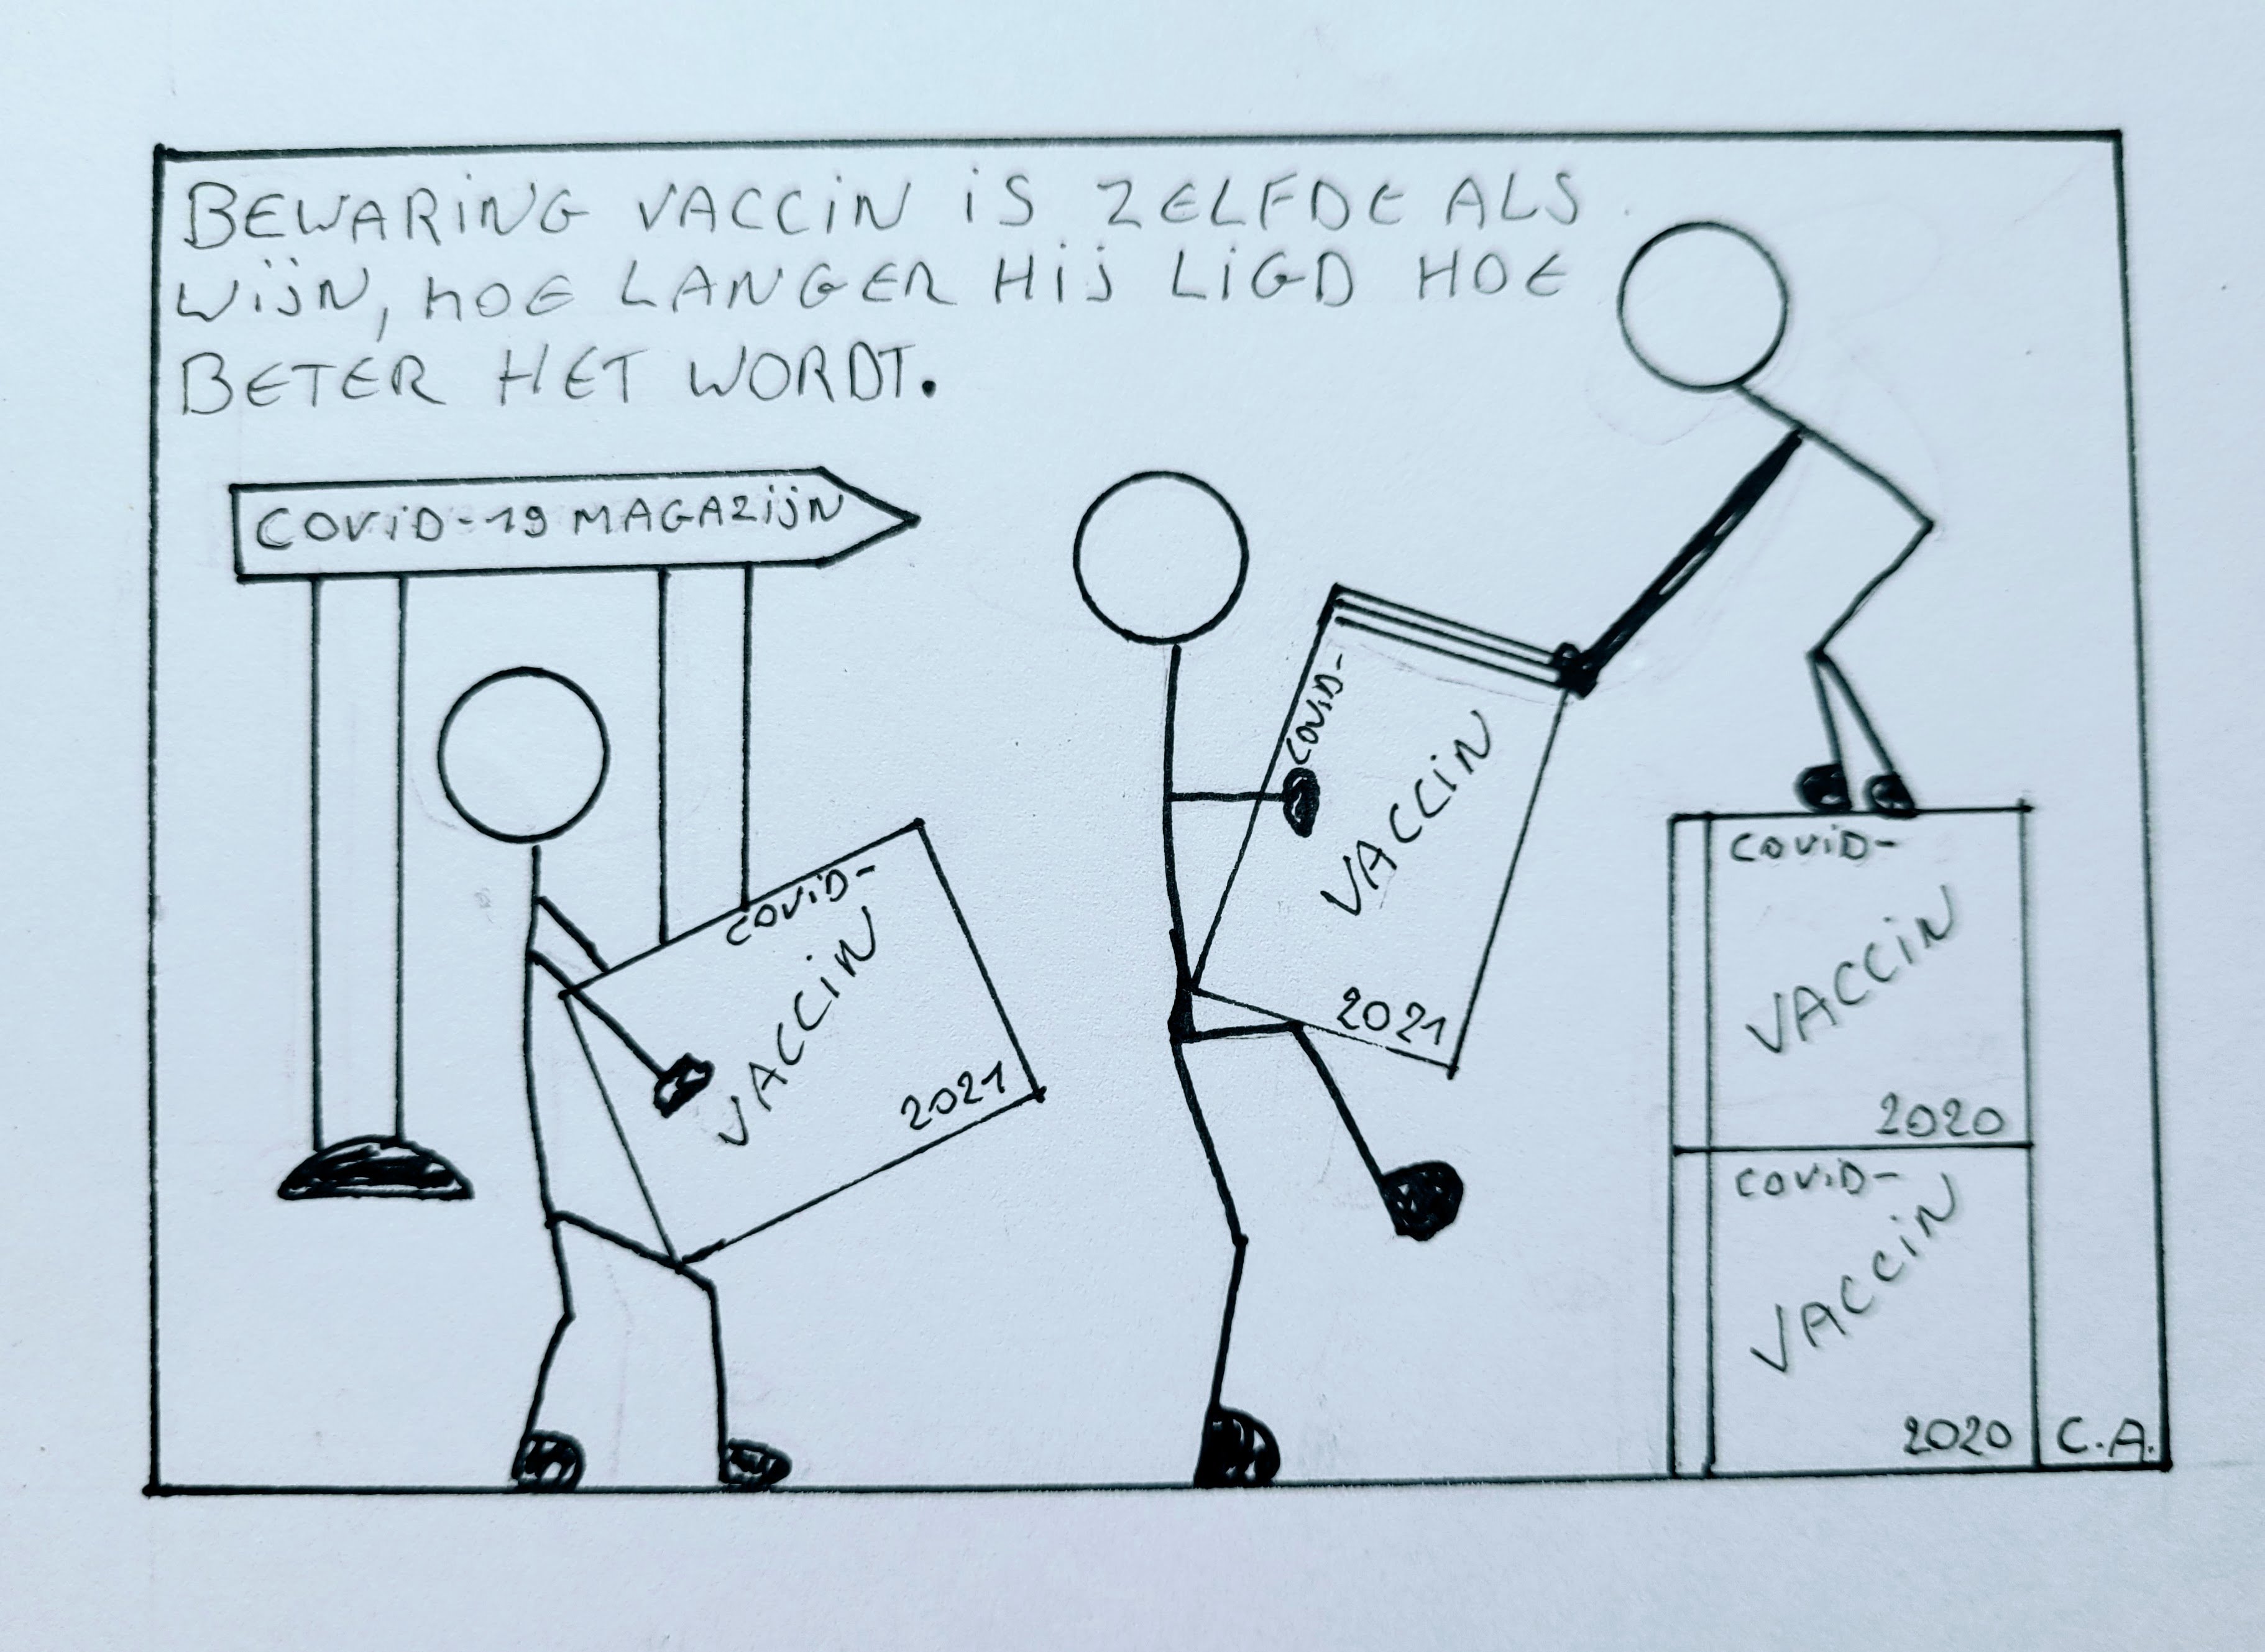 BEWARING VACCIN IS ZELFDE ALS
WIJN, HOE LANGER HIJ LIGD HOE
BETER HET WORDT.
COVID-19 MAGAZIJN
COVID-
VACCIN
2021
COVID-
VACCIN
2021
COVID-
VACCIN
2020
COVID-
VACCIN
2020
C.A.